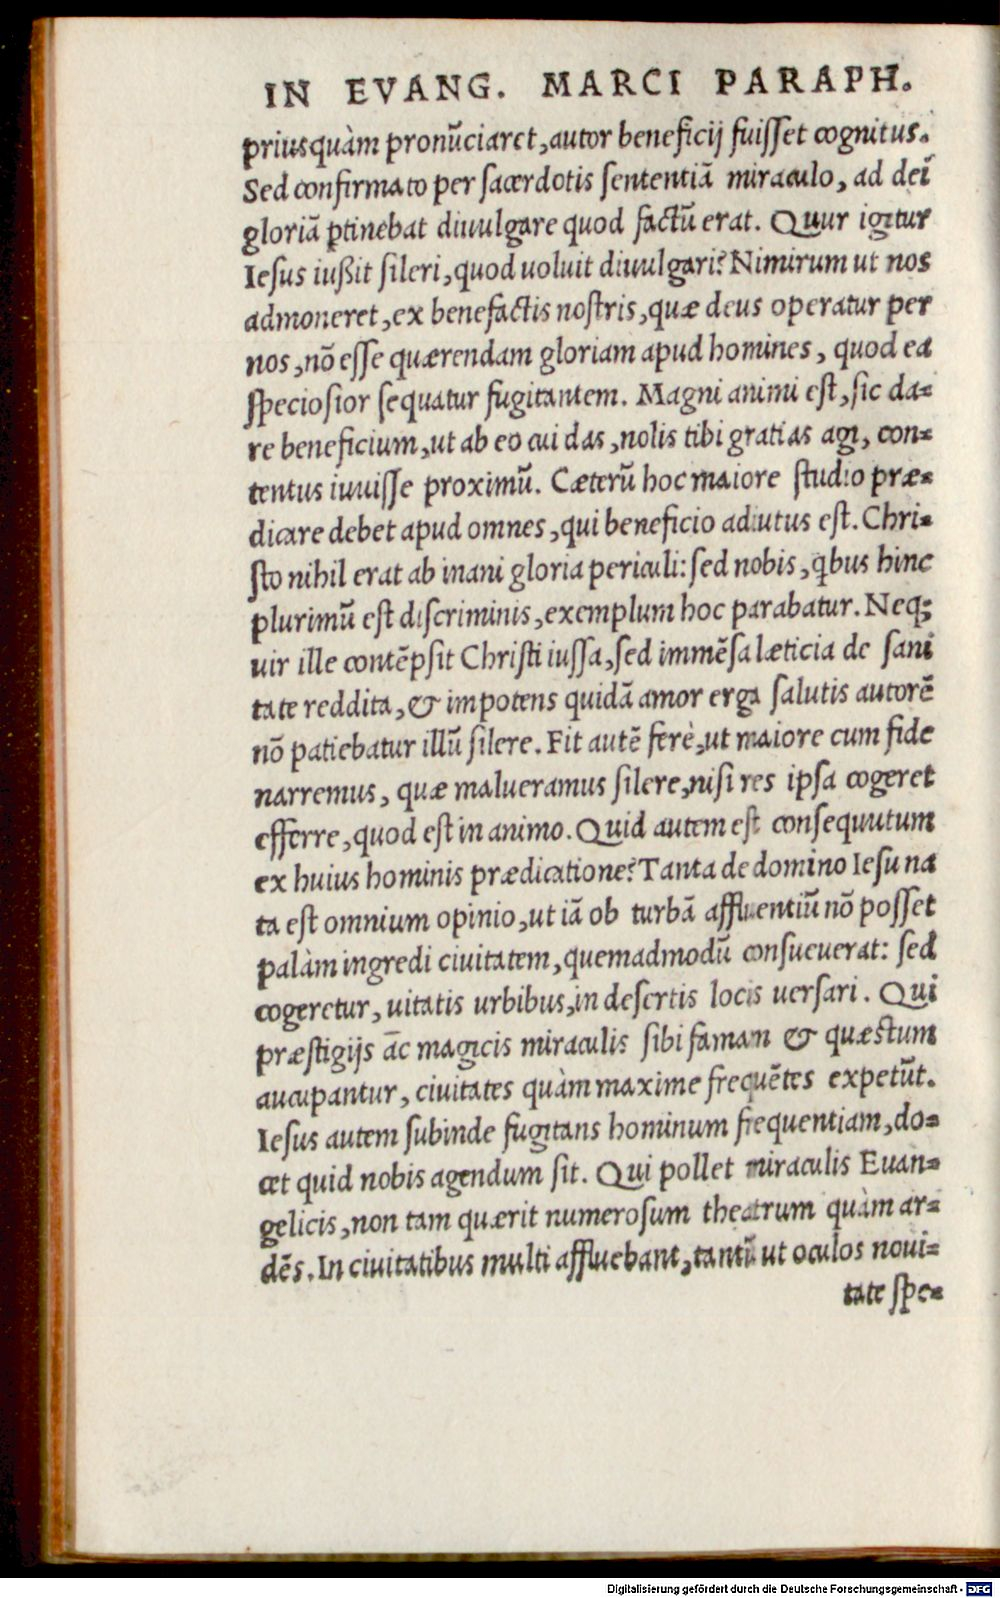 IN EVANG. MARCI PARAPH.
priusquàm pronũciaret, autor beneficij fuisset cognitus.
Sed confirmato per sacerdotis sententiã miraculo, ad dei
gloriã ꝑtinebat diuulgare quod factũ erat. Quur igitur
Iesus iußit sileri, quod uoluit diuulgari? Nimirum ut nos
admoneret, ex benefactis nostris, quæ deus operatur per
nos, nõ esse quærendam gloriam apud homines, quod ea
speciosior sequatur fugitantem. Magni animi est, sic da-
re beneficium, ut ab eo cui das, nolis tibi gratias agi, con-
tentus iuuisse proximũ. Cæterũ hoc maiore studio præ-
dicare debet apud omnes, qui beneficio adiutus est. Chri-
sto nihil erat ab inani gloria periculi: sed nobis, ꝗbus hinc
plurimũ est discriminis, exemplum hoc parabatur. Neq;
uir ille contẽpsit Christi iussa, sed immẽsa læticia de sani
tate reddita, & impotens quidã amor erga salutis autorẽ
nõ patiebatur illũ silere. Fit autẽ ferè, ut maiore cum fide
narremus, quæ malueramus silere, nisi res ipsa cogeret
efferre, quod est in animo. Quid autem est consequutum
ex huius hominis prædicatione? Tanta de domino Iesu na
ta est omnium opinio, ut iã ob turbã affluentiũ nõ posset
palàm ingredi ciuitatem, quemadmodũ consueuerat: sed
cogeretur, uitatis urbibus, in desertis locis uersari. Qui
præstigijs ãc magicis miraculis sibi famam & quæstum
aucupantur, ciuitates quàm maxime frequẽtes expetũt.
Iesus autem subinde fugitans hominum frequentiam, do-
cet quid nobis agendum sit. Qui pollet miraculis Euan-
gelicis, non tam quærit numerosum theatrum quàm ar-
dẽs. In ciuitatibus multi affluebant, tantũ ut oculos noui-
tate spe-
Digitalisierung gefördert durch die Deutsche Forschungsgemeinschaft - DFG